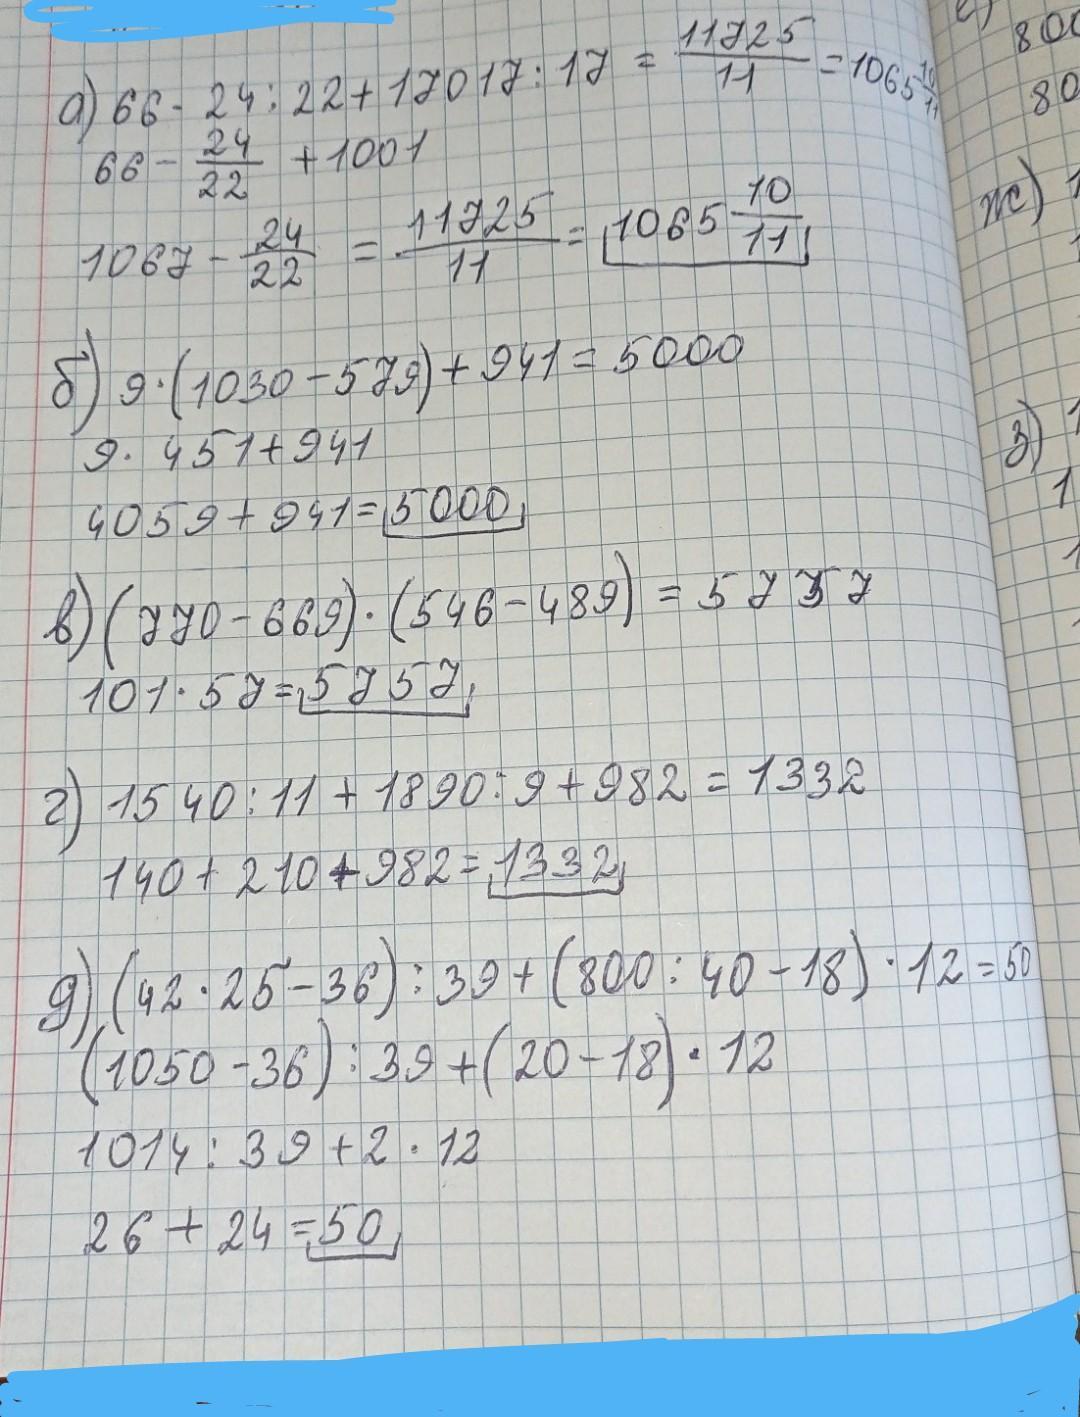 а) 66 - 24 : 22 + 17017 : 17 = 11725/11 = 1065 10/11
66 - 24/22 + 1001
1067 - 24/22 = 11725/11 = 1065 10/11
б) 9 · (1030 - 579) + 941 = 5000
9 · 451 + 941
4059 + 941 = 5000
в) (770 - 669) · (546 - 489) = 5757
101 · 57 = 5757
г) 1540 : 11 + 1890 : 9 + 982 = 1332
140 + 210 + 982 = 1332
д) (42 · 25 - 36) : 39 + (800 : 40 - 18) · 12 = 50
(1050 - 36) : 39 + (20 - 18) · 12
1014 : 39 + 2 · 12
26 + 24 = 50
е)
800
80
ж) 1
з) 1
1